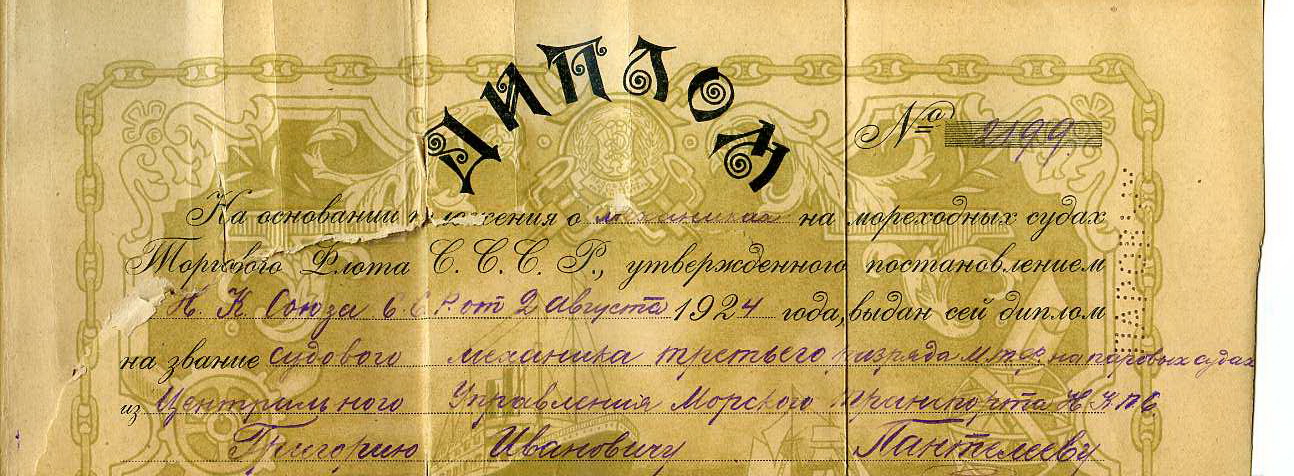 ДИПЛОМ
№ 2199
На основании о механиках на мореходных судах
Торгового Флота С. С. С. Р., утвержденного постановлением
Н. К Союза от 2 августа 1924 года, выдан сей диплом
на звание судового механика третьего разряда на паровых судах
из Центрального Управления Морского Транспорта Н.К.П.С
Григорию Ивановичу Пантелееву